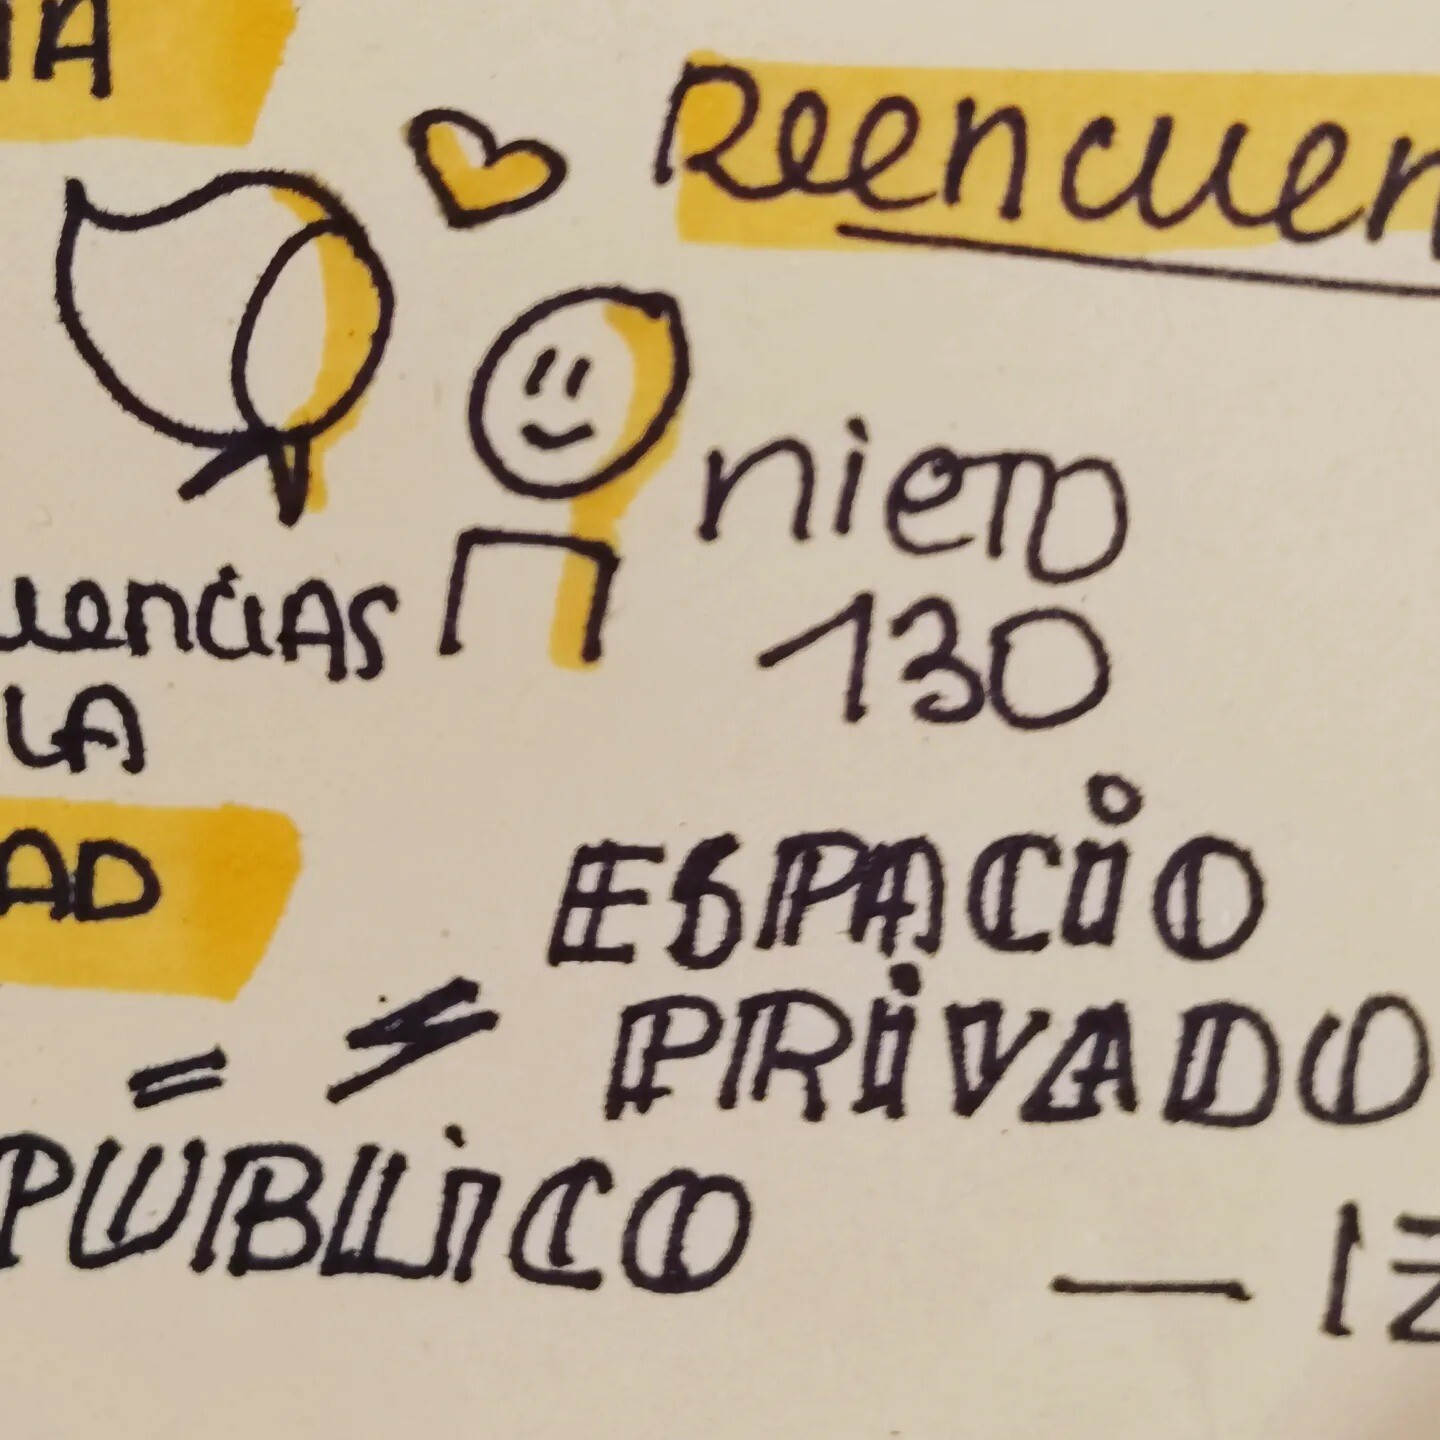 IA
Reencuen
nieto
130
uencias
LA
AD
ESPACIO
PRIVADO
=
PUBLICO
— IZ